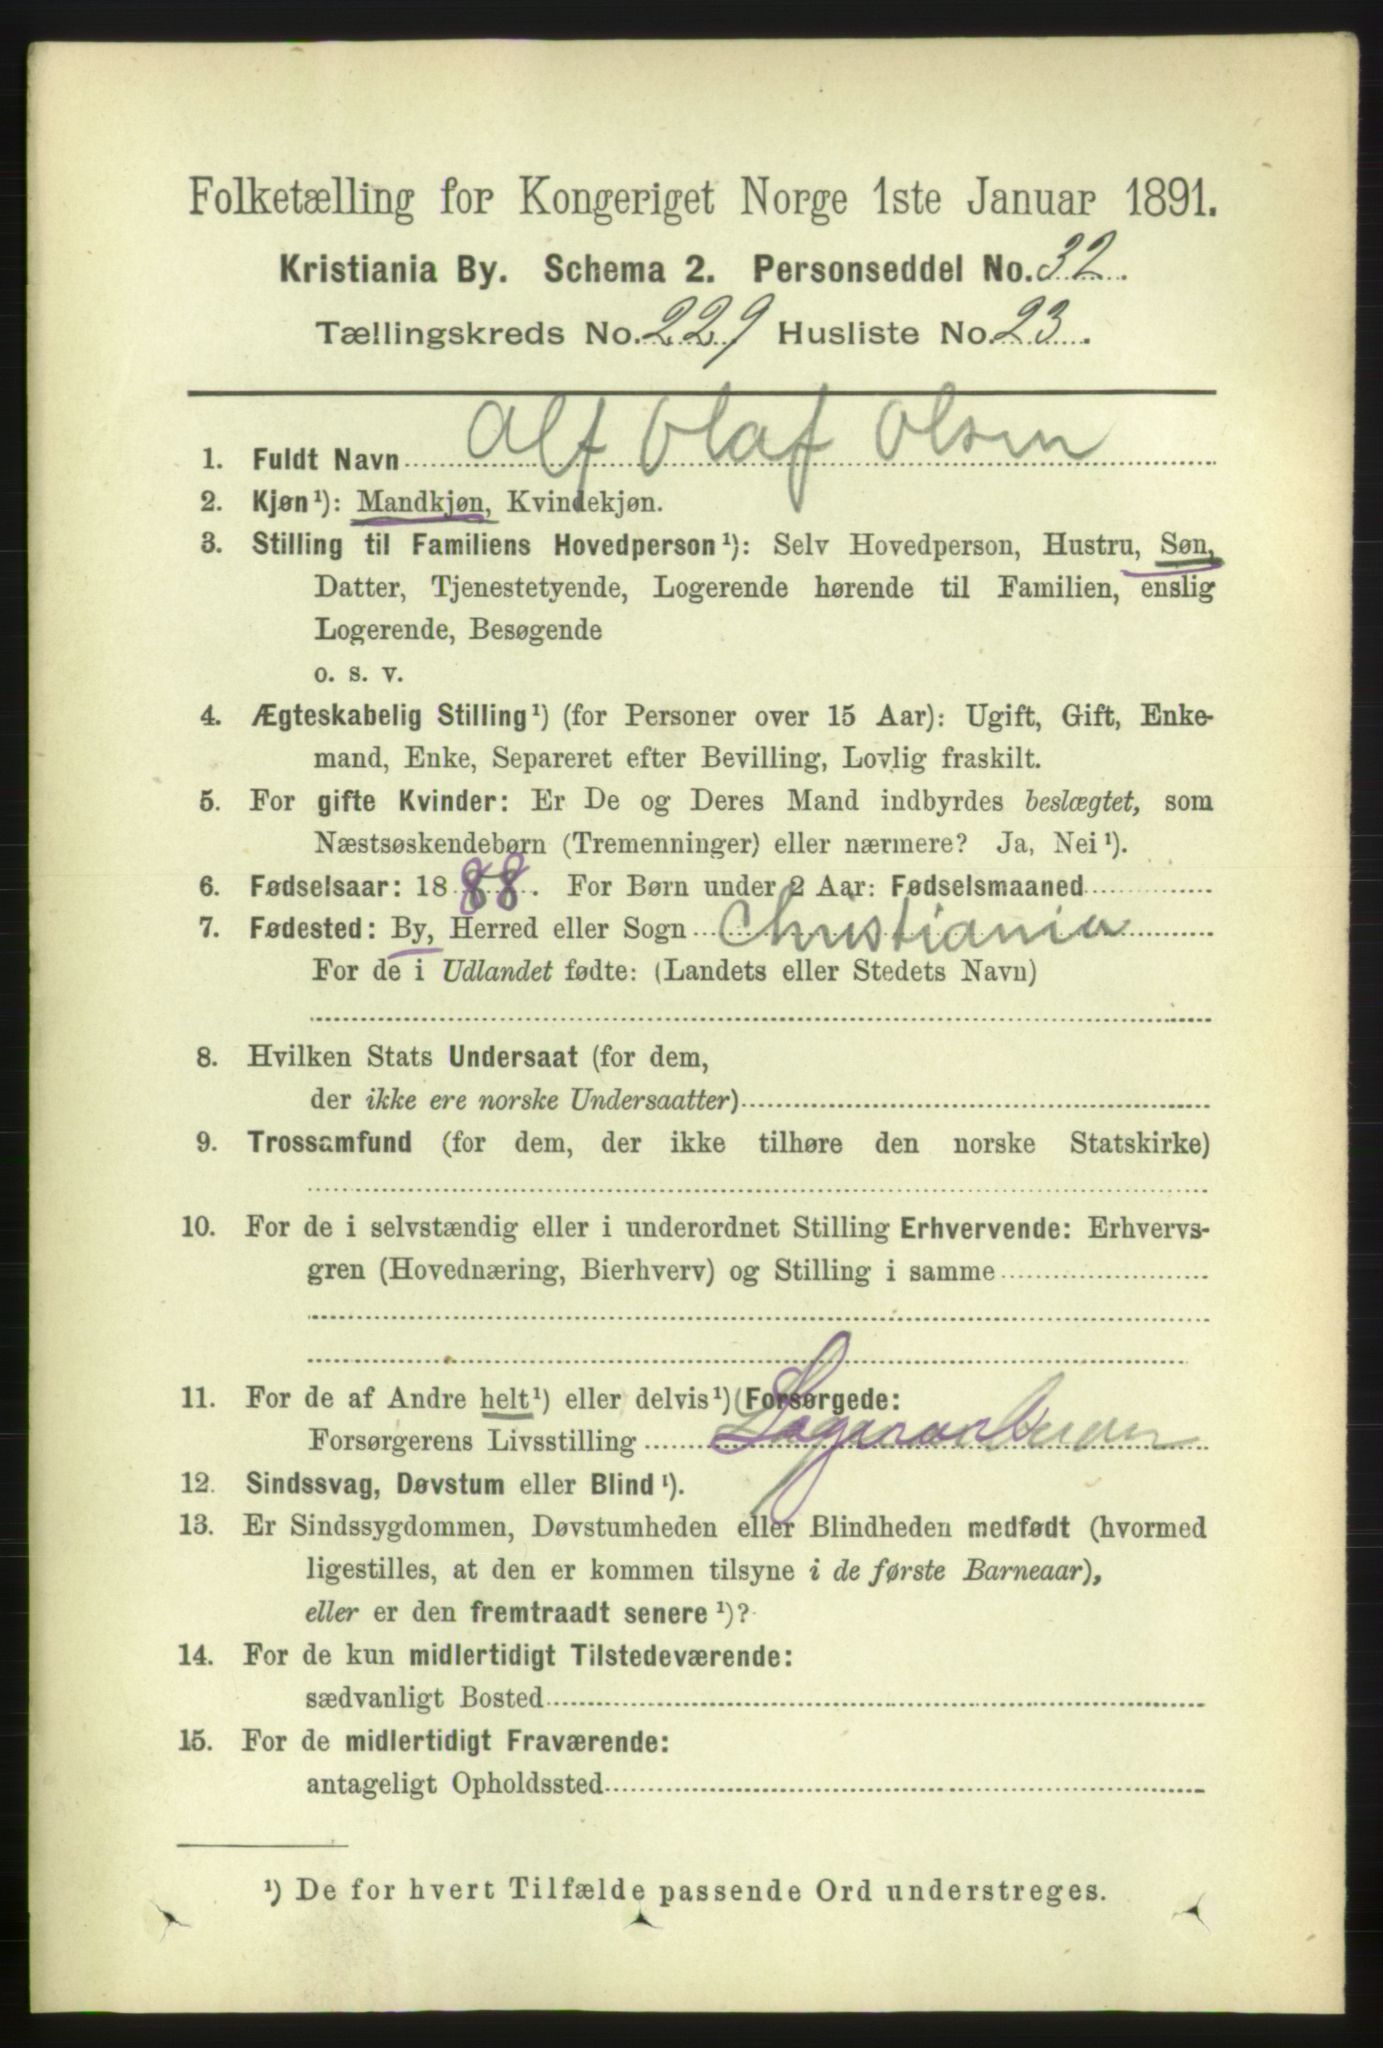 Folketælling for Kongeriget Norge 1ste Januar 1891.
Kristiania By. Schema 2. Personseddel No. 32.
Tællingskreds No. 229 Husliste No. 23.
1. Fuldt Navn Alf Olaf Olsen
2. Kjøn¹): Mandkjøn, Kvindekjøn.
3. Stilling til Familiens Hovedperson¹): Selv Hovedperson, Hustru, Søn,
Datter, Tjenestetyende, Logerende hørende til Familien, enslig
Logerende, Besøgende
o. s. v.
4. Ægteskabelig Stilling¹) (for Personer over 15 Aar): Ugift, Gift, Enke-
mand, Enke, Separeret efter Bevilling, Lovlig fraskilt.
5. For gifte Kvinder: Er De og Deres Mand indbyrdes beslægtet, som
Næstsøskendebørn (Tremenninger) eller nærmere? Ja, Nei¹).
6. Fødselsaar: 1888. For Børn under 2 Aar: Fødselsmaaned
7. Fødested: By, Herred eller Sogn Christiania
For de i Udlandet fødte: (Landets eller Stedets Navn)
8. Hvilken Stats Undersaat (for dem,
der ikke ere norske Undersaatter)
9. Trossamfund (for dem, der ikke tilhøre den norske Statskirke)
10. For de i selvstændig eller i underordnet Stilling Erhvervende: Erhvervs-
gren (Hovednæring, Bierhverv) og Stilling i samme
11. For de af Andre helt¹) eller delvis¹) (Forsørgede:
Forsørgerens Livsstilling
12. Sindssvag, Døvstum eller Blind¹).
13. Er Sindssygdommen, Døvstumheden eller Blindheden medfødt (hvormed
ligestilles, at den er kommen tilsyne i de første Barneaar),
eller er den fremtraadt senere¹)?
14. For de kun midlertidigt Tilstedeværende:
sædvanligt Bosted
15. For de midlertidigt Fraværende:
antageligt Opholdssted
¹) De for hvert Tilfælde passende Ord understreges.